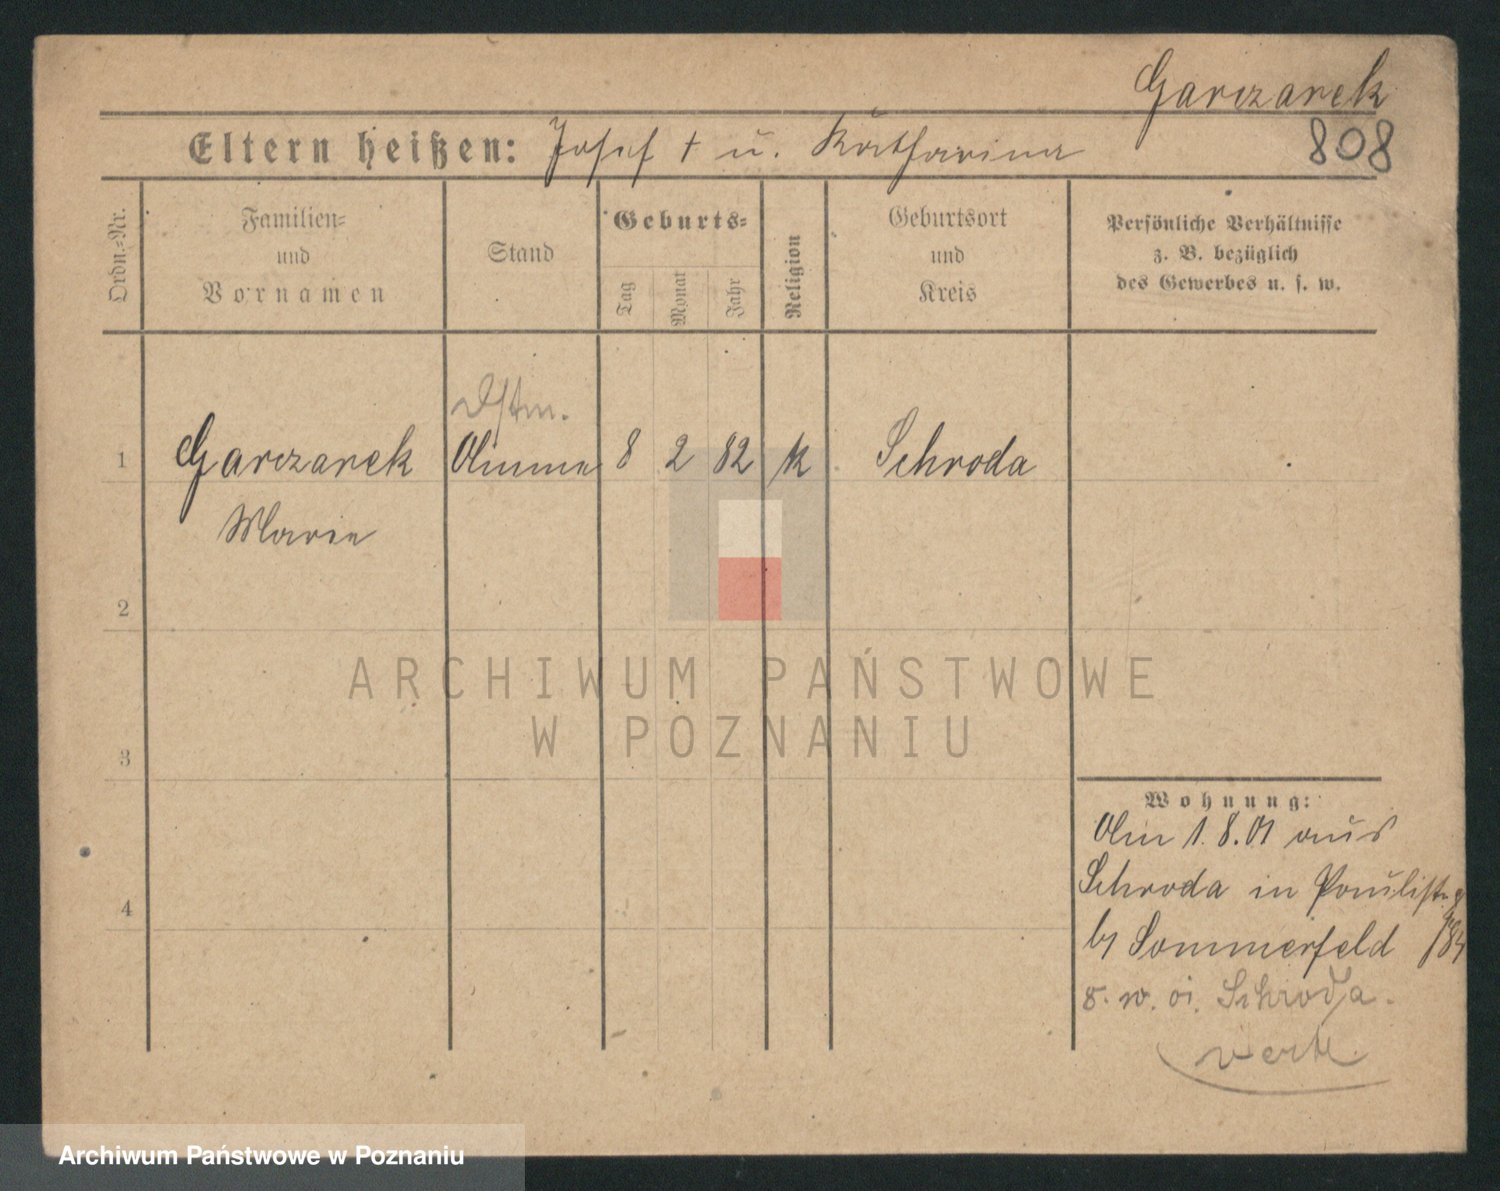 Garczarek
808
Eltern heißen: Josef † u. Katharina
Ordn.-Nr.
Familien-
und
Vornamen
Stand
Geburts-
Tag
Monat
Jahr
Religion
Geburtsort
und
Kreis
Persönliche Verhältnisse
z. B. bezüglich
des Gewerbes u. s. w.
1
Garczarek
Marie
Dstm.
Amme
8 2 82 k
Schroda
2
3
4
ARCHIWUM PAŃSTWOWE
W POZNANIU
Wohnung:
Am 1.8.01 aus
Schroda in Paulistr.
by Sommerfeld
Schroda.
Archiwum Państwowe w Poznaniu